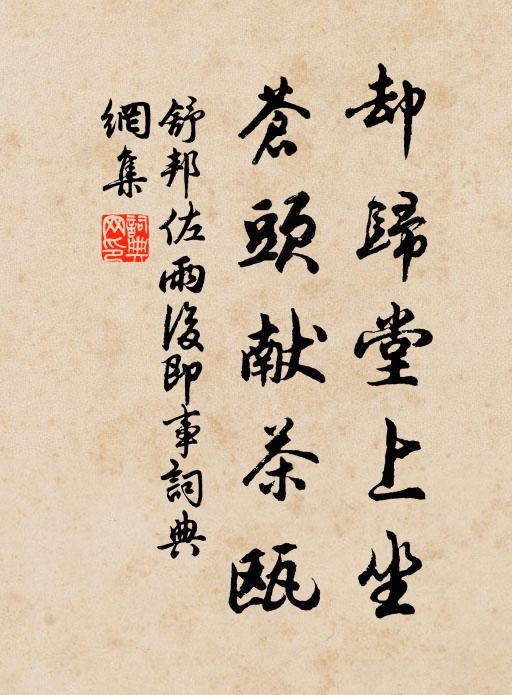 却歸堂上坐
蒼頭献茶甌
舒邦佐雨後即事詞典
網集
詞典網印